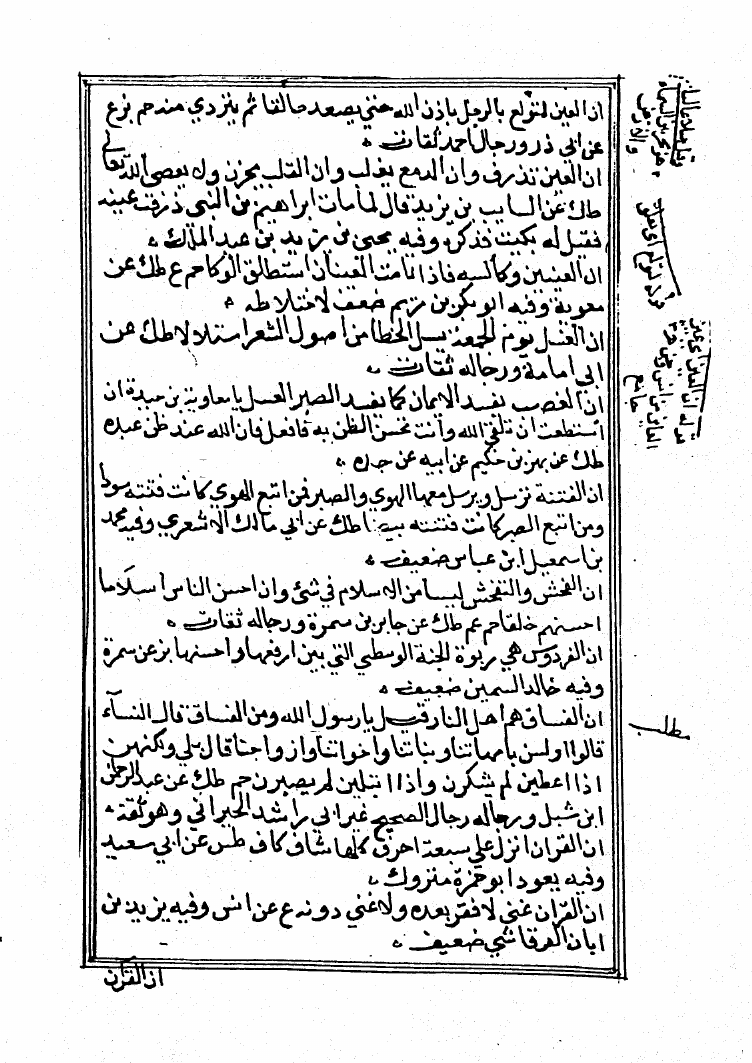 ان العين لتولع بالرجل باذن الله حتي يصعد حالقا ثم يتردي منه حم بز ع
عن ابي ذر ورجال احمد ثقات
ان العين تذرف وان الدمع يغلب وان القلب يحزن ولا يعصى الله تعالى
طك عن السايب بن يزيد قال لما مات ابراهيم بن النبي ذرفت عينه
فقيل له بكيت فذكره وفيه يحيى بن يزيد بن عبد الملك
ان العينين وكا السه فاذا نامت العينان استطلق الوكا حم ع طك عن
معوية وفيه ابو بكر بن مريم ضعف لاختلاطه
ان الغسل يوم الجمعة يسل الخطا من اصول الشعر استلالا طك عن
ابي امامة ورجاله ثقات
ان الغضب يفسد الايمان كما يفسد الصبر العسل يا معاوية بن حيدة ان
استطعت ان تلقى الله وأنت تحسن الظن به فافعل فان الله عند ظن عبده
طك عن بهز بن حكيم عن ابيه عن جده
ان الفتنة ترسل ويرسل معها الهوي والصبر فمن اتبع الهوي كانت فتنته سودا
ومن اتبع الصبر كانت فتنته بيضا طك عن ابي مالك الاشعري وفيه محمد
بن اسمعيل ابن عياس ضعيف
ان الفحش والتفحش ليسا من الاسلام في شئ وان احسن الناس اسلاما
احسنهم خلقا حم عم طك عن جابر بن سمرة ورجاله ثقات
ان الفردوس هي ربوة الجنة الوسطي التي بين ارفعها واحسنها بز عن سمرة
وفيه خالد السمين ضعيف
ان الفساق هم اهل النار قيل يا رسول الله ومن الفساق قال النسآء
قالوا اولسن بامهاتنا وبناتنا واخواتنا وازواجنا قال بلي ولكنهن
اذا اعطين لم يشكرن واذا ابتلين لم يصبرن حم طك عن عبد الرحمن
ابن شبل ورجاله رجال الصحيح غير ابي راشد الحبراني وهو ثقة
ان القران انزل علي سبعة احرف كلها شاف كاف طس عن ابي سعيد
وفيه يعود ابو حمزة متروك
ان القران غني لا فقر بعده ولا غني دونه ع عن انس وفيه يزيد بن
ابان الرقاشي ضعيف
ان القرآن
قوله لتولع اي تعلق
مطلب